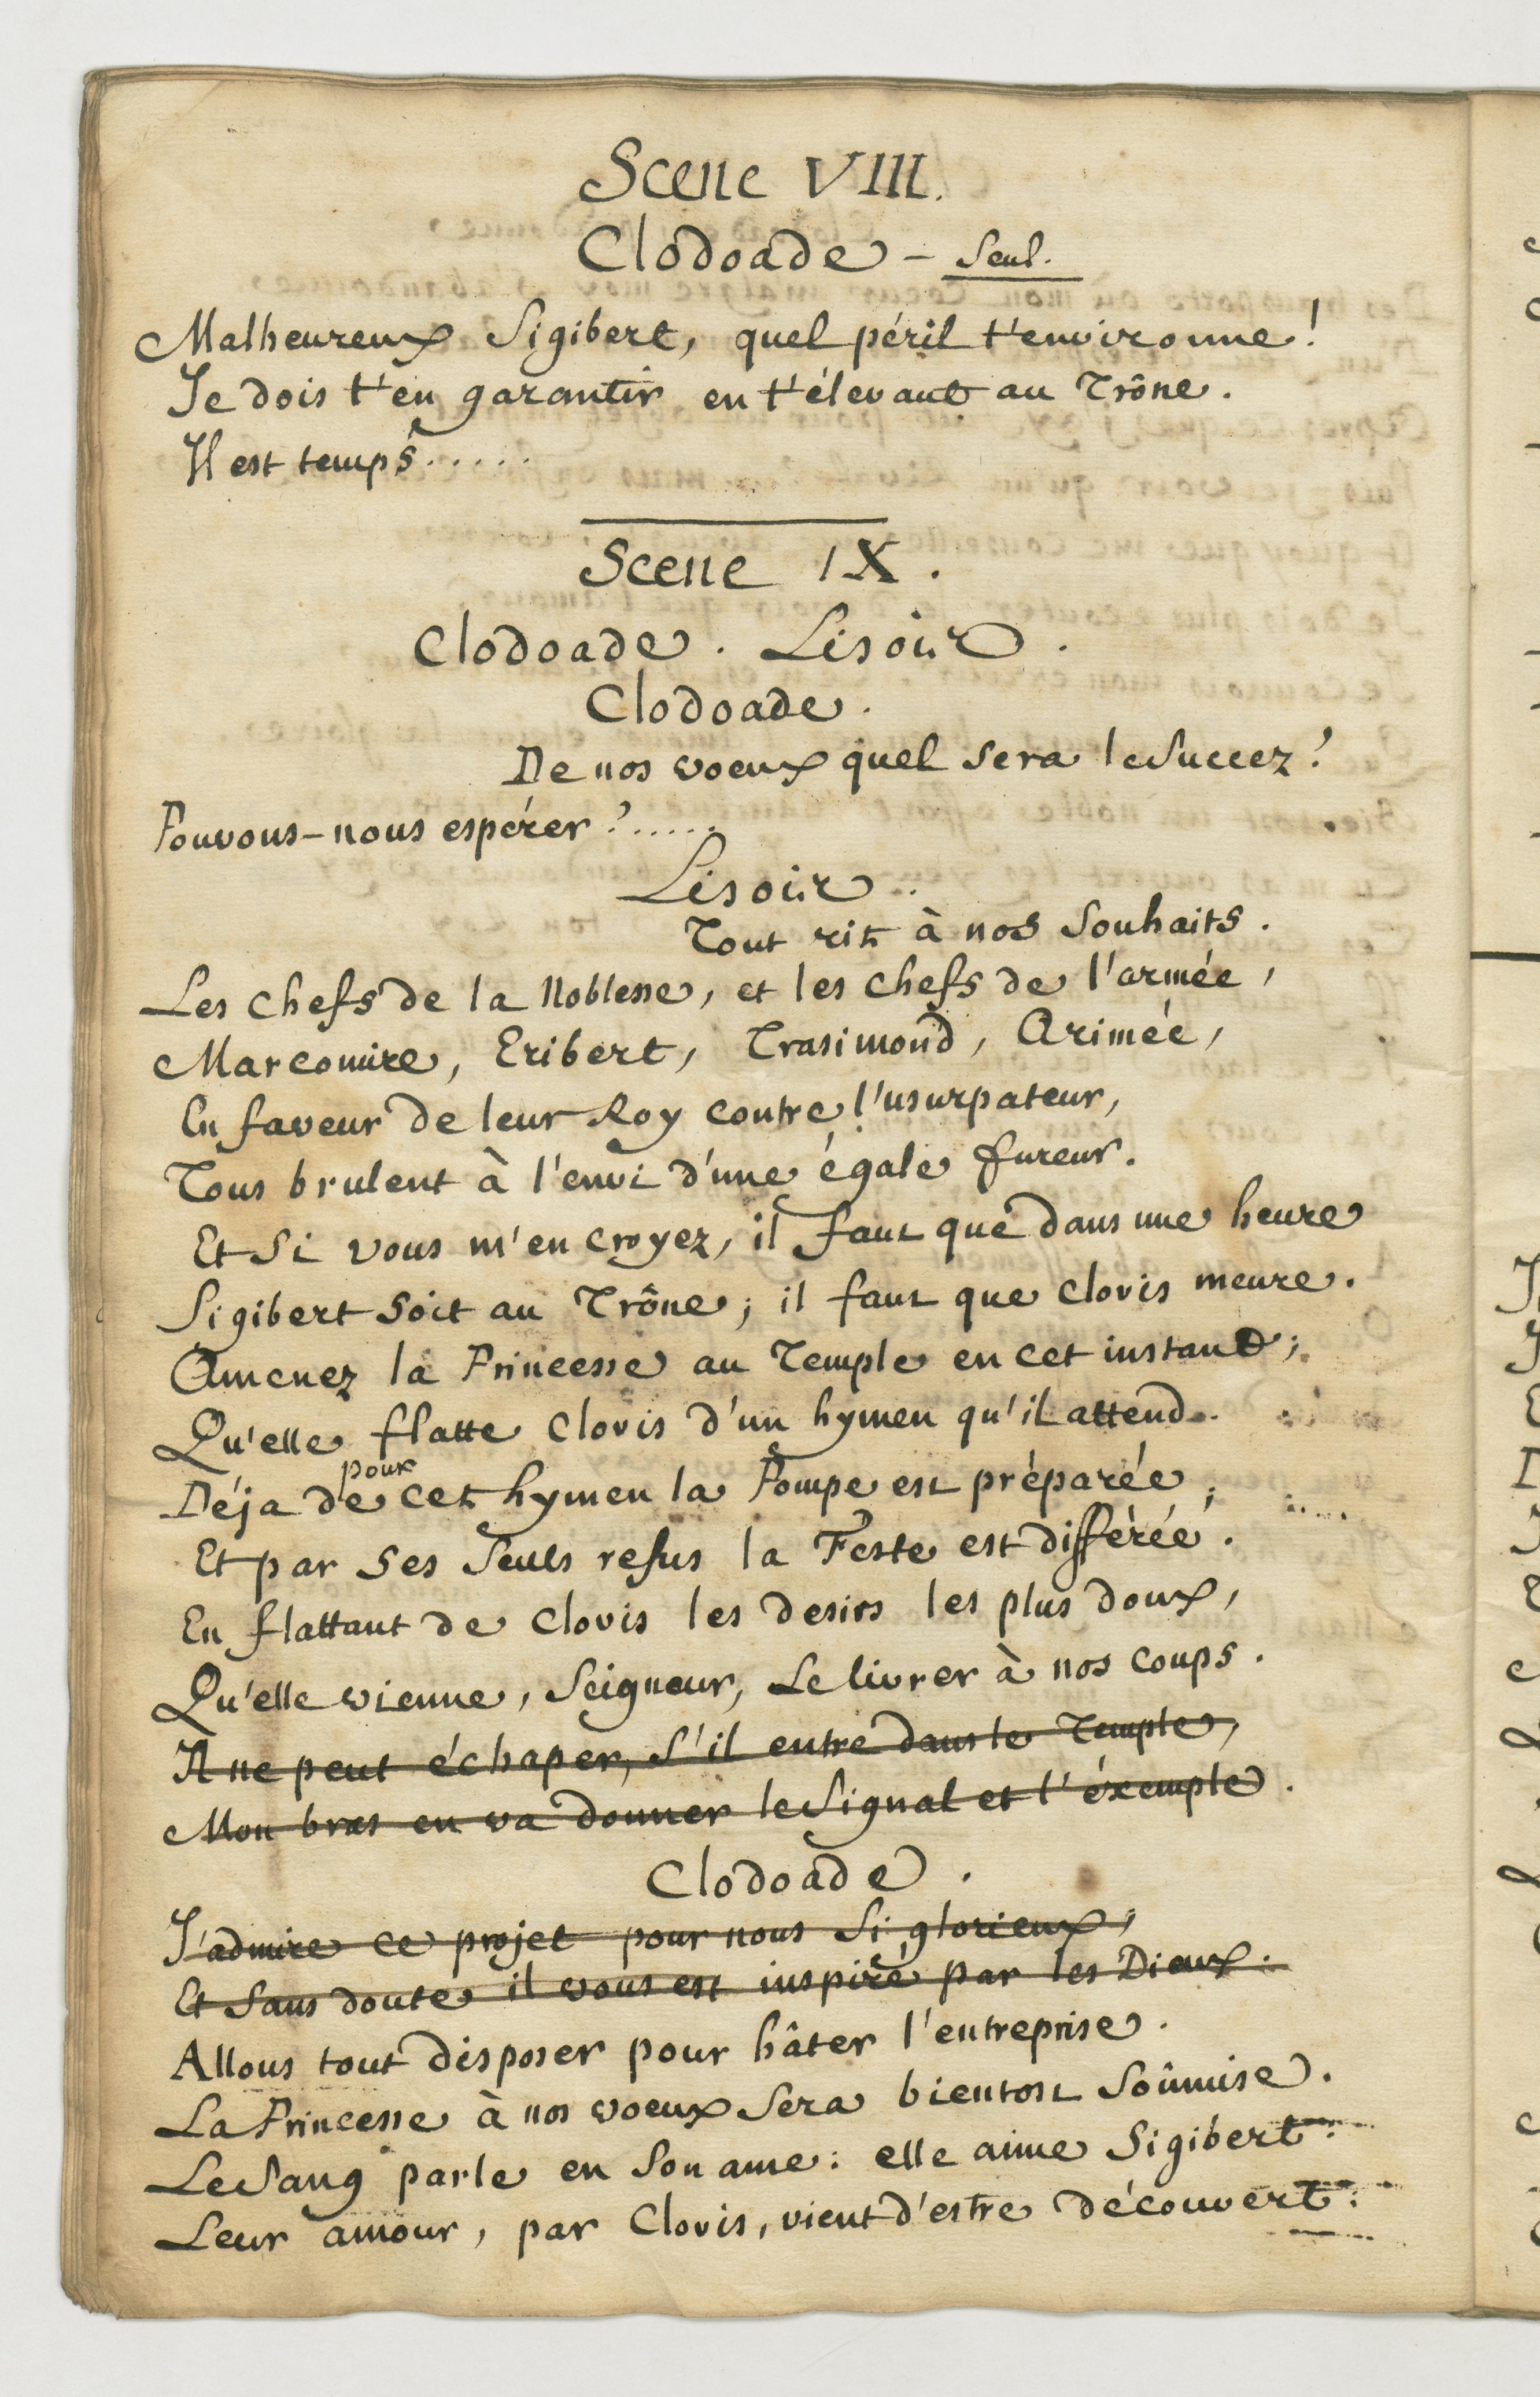 Scene VIII.
Clodoade - Seul.
Malheureux Sigibert, quel péril t'environne!
Je dois t'en garantir en t'élevant au Trône.
Il est temps.....
Scene IX.
Clodoade. Lisoir.
Clodoade.
De nos voeux quel sera le Succez?
Pouvons-nous espérer?.....
Lisoir.
Tout rit à nos Souhaits.
Les chefs de la Noblesse, et les chefs de l'armée,
Marcomire, Eribert, Trasimond, Arimée,
En faveur de leur Roy contre l'usurpateur,
Tous brulent à l'envi d'une égale fureur.
Et Si vous m'en croyez, il faut que dans une heure
Sigibert soit au Trône; il faut que Clovis meure.
Amenez la Princesse au Temple en cet instant;
Qu'elle flatte Clovis d'un hymen qu'il attend.
pour
Déja de cet hymen la Pompe est préparée;
Et par ses Seuls refus la Feste est différée.
En flattant de Clovis les desirs les plus doux,
Qu'elle vienne, Seigneur, Le livrer à nos coups.
Il ne peut échaper, s'il entre dans le Temple,
Mon bras en va donner le Signal et l'éxemple.
Clodoade.
J'admire ce projet pour nous Si glorieux;
Et Sans doute il vous est inspiré par les Dieux.
Allons tout disposer pour hâter l'entreprise.
La Princesse à nos voeux Sera bientost Soûmise.
Le Sang parle en Son ame: elle aime Sigibert:
Leur amour, par Clovis, vient d'estre découvert: